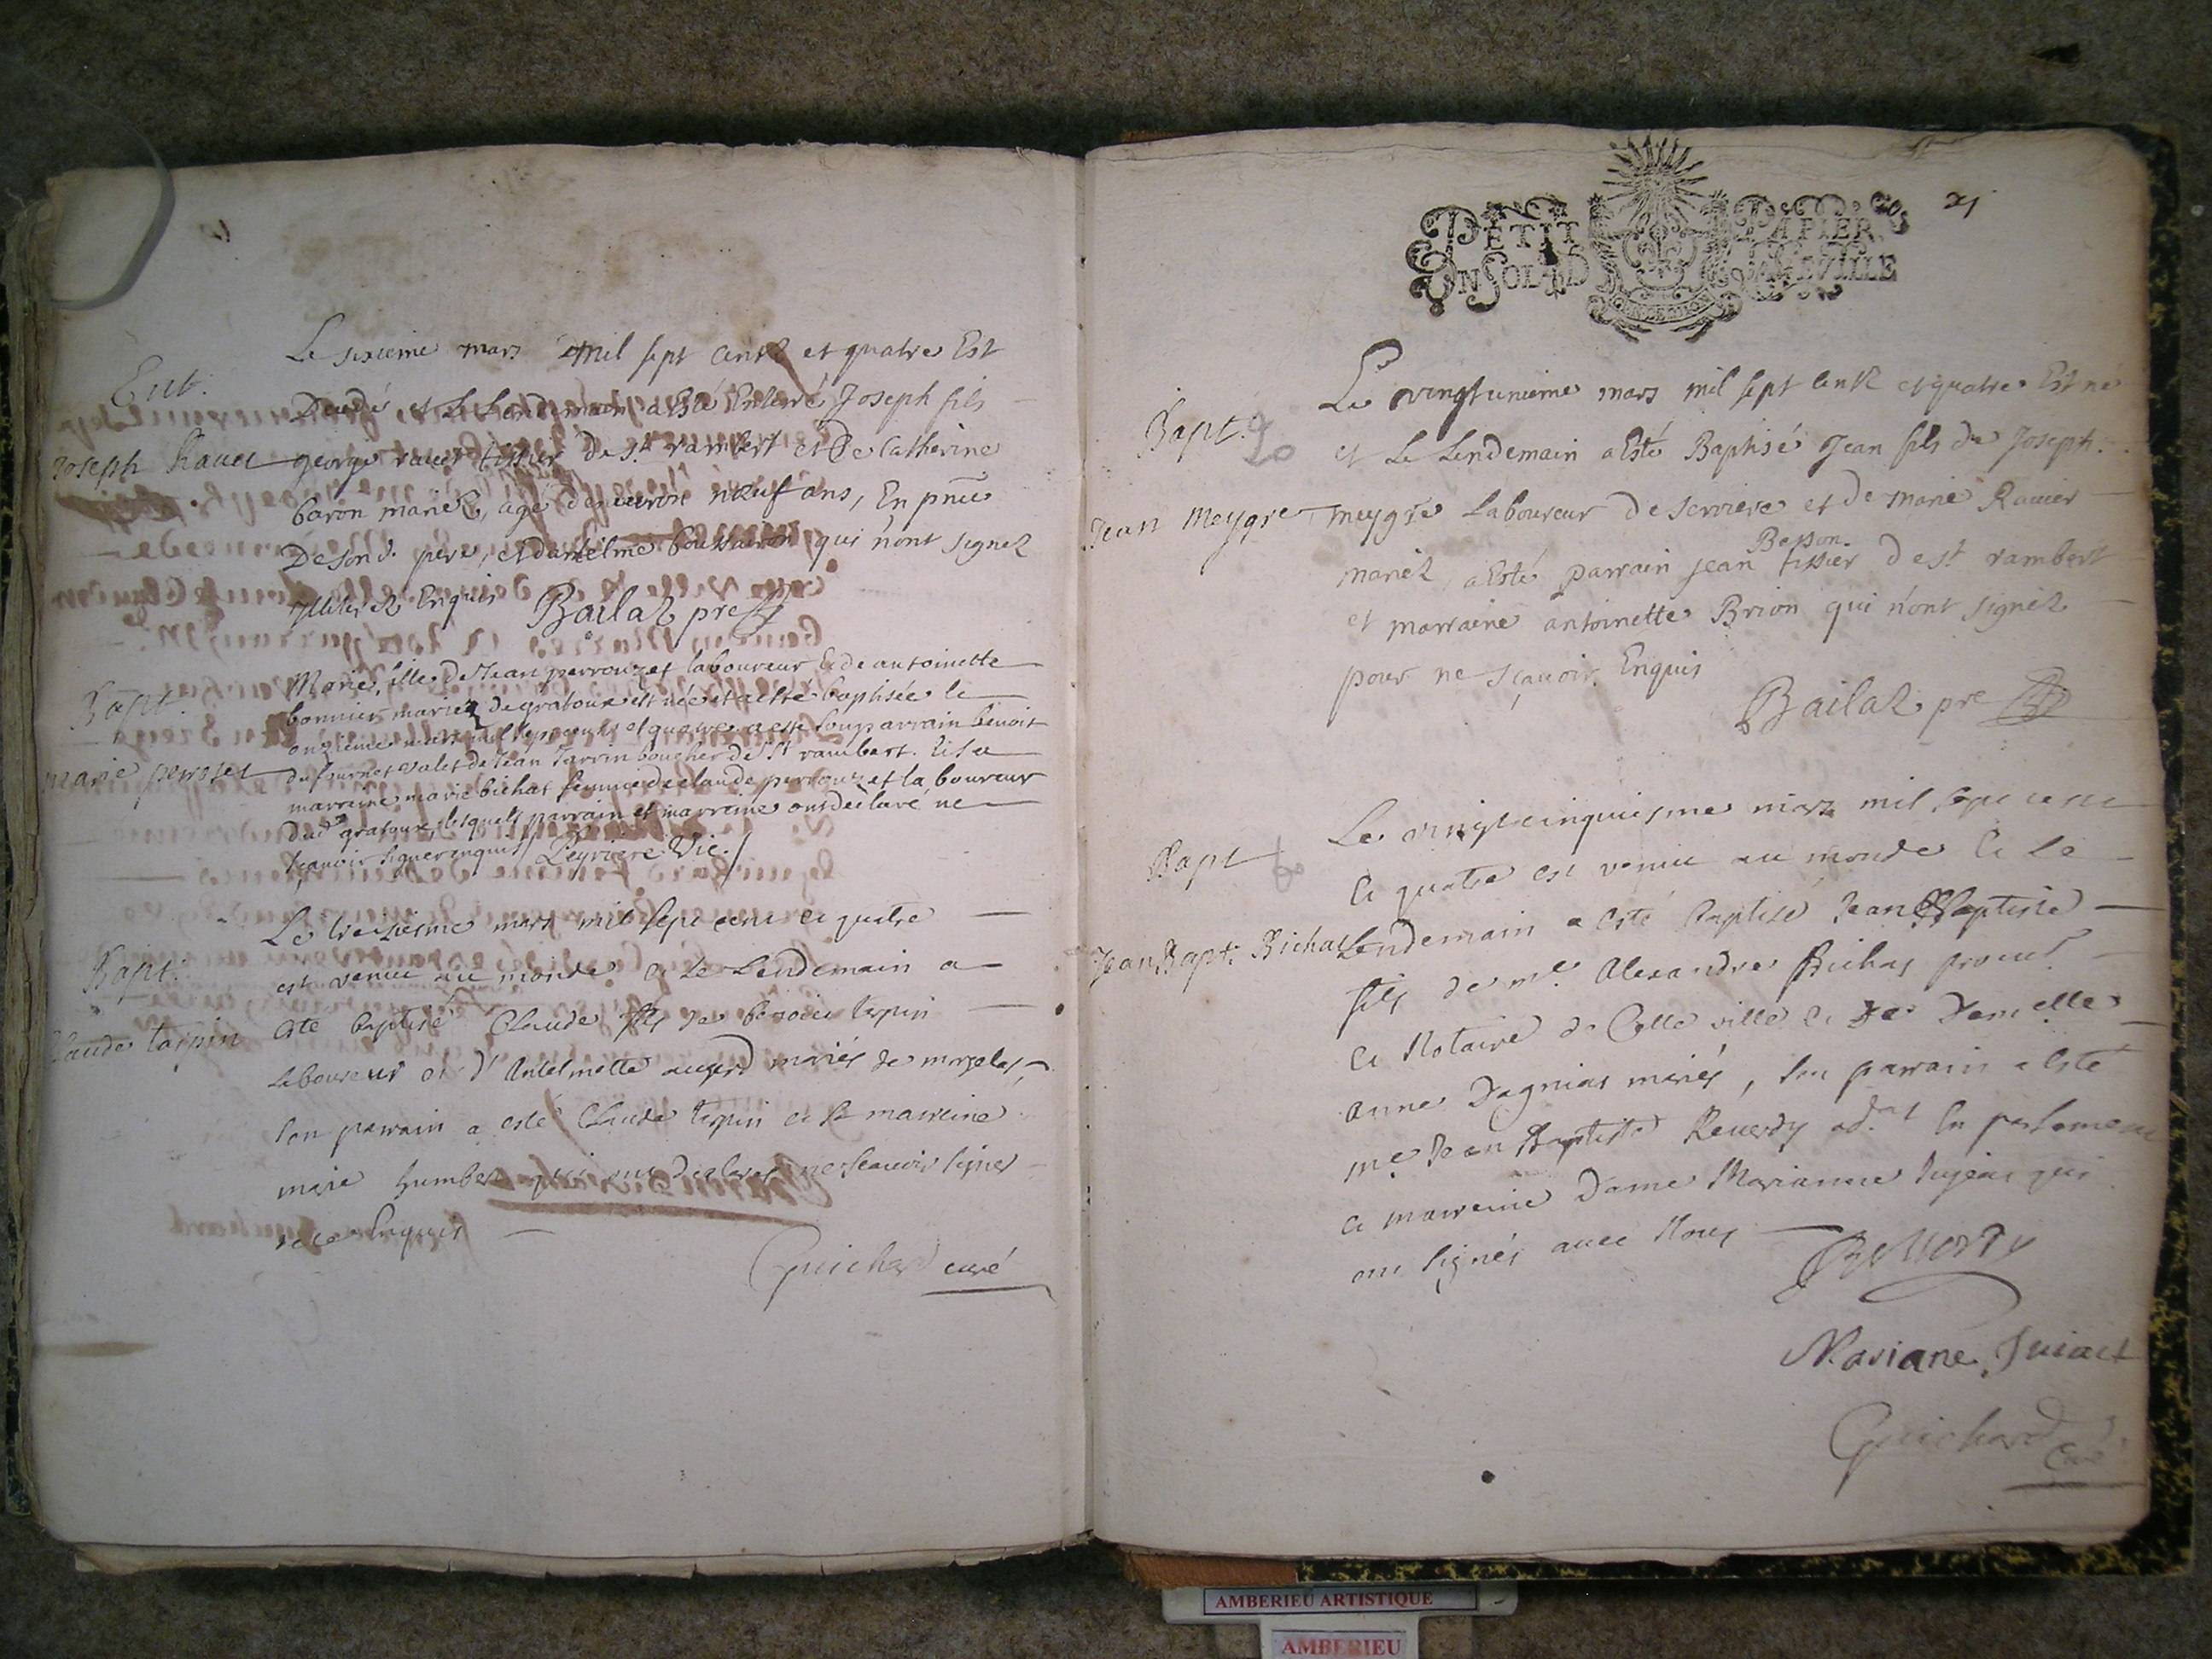 Ent.
Joseph Rauet
Le sixieme mars mil sept centz et quatre Est
Decedé et Le Lendemain a Esté Enterré Joseph fils
george rauet tissier de st rambert et De Catherine
baron mariez, agé d'enuiron neuf ans, En pnce
De sond. pere, et danthelme qui n'ont signez
illiterez Enquis Bailaz pre
Bapt.
marie perrozet
Marie fille de Jean perrouzet laboureur & de antoinette
bonnier mariez de gratoux est née et a esté baptisée le
onzieme mars mil sept cents et quatre a esté son parrain benoit
dufournet valet de Jean Tarrin boucher de St rambert. Et sa
marraine marie bichat femme de claude perrouzet laboureur
dud. gratoux, lesquels parrain et marraine ont declaré ne
sçauoir signer enquis / Peyriere Vic. /
Bapt.
Claude tarpin
Le treiziesme mars mil sept cent et quatre
est venu au monde et Le Lendemain a
esté baptisé Claude fils de benoict tarpin
Laboureur et d'Antelmette mariés de
son parrain a esté Claude tarpin et sa marreine
marie humbert qui ont declarés ne scauoir signer
de ce Enquis
Guichard curé
PETIT PAPIER
UN SOL
21
Bapt.
Jean Meygre
Le vingtunieme mars mil sept centz et quatre Est né
et Le Lendemain a Esté Baptisé Jean fils de Joseph
meygre Laboureur de serriere et de marie Rauier
Besson
mariez, a Esté parrain jean tissier de st rambert
et marraine antoinette Brion qui n'ont signéz
pour ne sçauoir Enquis
Bailaz pre
Bapt
Jean Bapt. Bichat
Le vingtcinquiesme mars mil sept cent
et quatre est venu au monde et Le
Lendemain a esté baptisé Jean Baptiste
fils de me. Alexandre Bichat procur.
et Notaire de Cette ville et de Damelle
anne Dagnias mariés, son parrain a Esté
me Jean Baptiste Reuerdy ad.at En parlement
et marreine Dame Marianne Jujeat qui
ont signés auec Nous
Reuerdy
Mariane Juiact
Guichard
Curé
AMBERIEU ARTISTIQUE
AMBERIEU